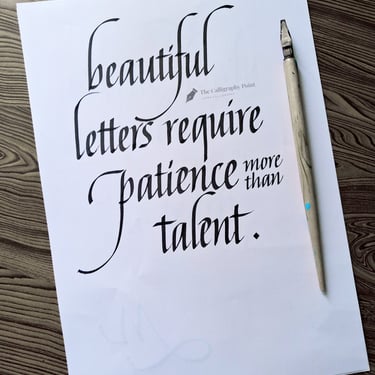 beautiful
The Calligraphy Point
letters require
patience more than
talent.